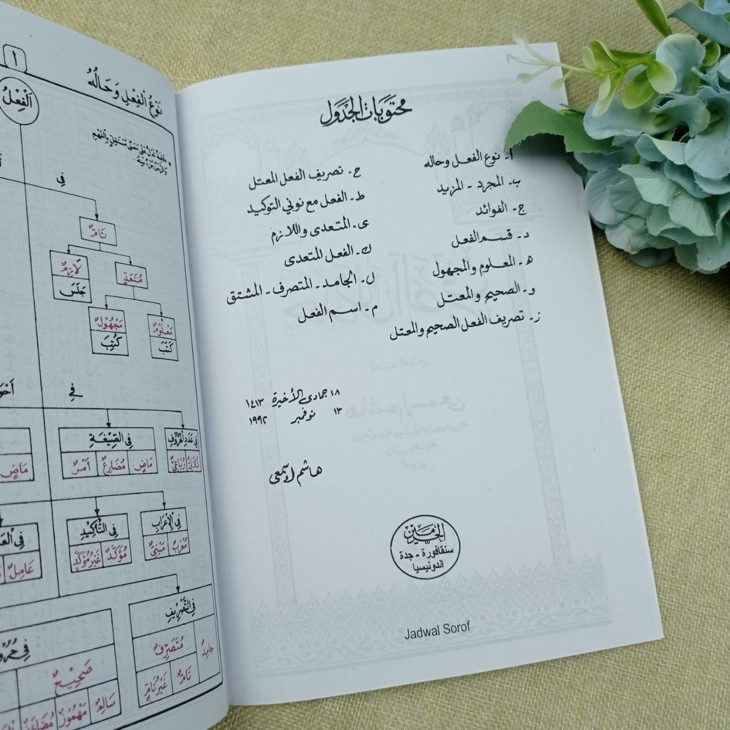 محتويات الجدول
أ- نوع الفعل وحاله
ب- المجرد - المزيد
ج- الفوائد
د- قسم الفعل
ه- المعلوم والمجهول
و- الصحيح والمعتل
ز- تصريف الفعل الصحيح والمعتل
ح- تصريف الفعل المعتل
ط- الفعل مع نوني التوكيد
ى- المتعدى واللازم
ك- الفعل المتعدى
ل- الجامد - المتصرف - المشتق
م- اسم الفعل
١٨ جمادى الأخيرة ١٤١٣
١٣ نوفمبر ١٩٩٢
الحرمين
سنقافورة - جدة
اندونيسيا
Jadwal Sorof
١
نَوْعُ الْفِعْلِ وَحَالُهُ
اَلْفِعْلُ
فِي
تَامٌّ
لَازِمٌ
جَلَسَ
مُتَعَدٍّ
مَجْهُولٌ
كُتِبَ
مَعْلُومٌ
كَتَبَ
فِي
فِي الصِّيْغَةِ
مَاضٍ مُضَارِعٌ اَمْرٌ
فِي الْإِعْرَابِ
مُعْرَبٌ مَبْنِيٌّ
فِي التَّأْكِيْدِ
مُؤَكَّدٌ غَيْرُ مُؤَكَّدٍ
عَامِلٌ
فِي التَّصْرِيْفِ
جَامِدٌ مُتَصَرِّفٌ
تَامٌّ غَيْرُ تَامٍّ
صَحِيْحٌ
سَالِمٌ مَهْمُوْزٌ مُضَاعَفٌ